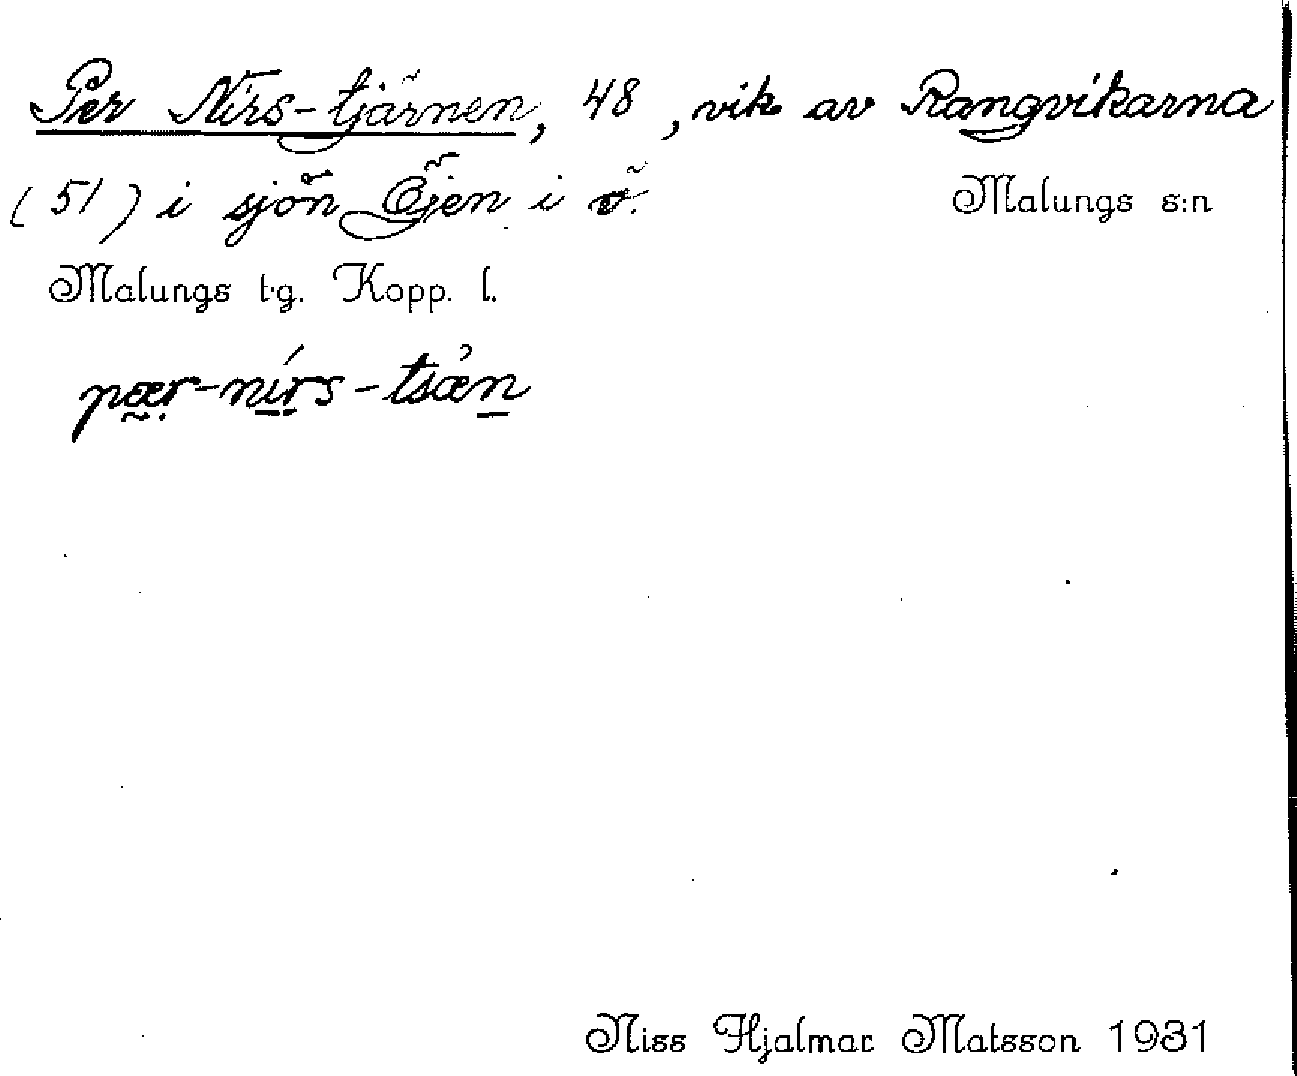 Per Nirs-tjärnen, 48, vik av Rangvikarna
(51) i sjön Öjen i ö. Malungs s:n
Malungs t.g. Kopp. l.
pær-nírs-tsæn
Niss Hjalmar Matsson 1931